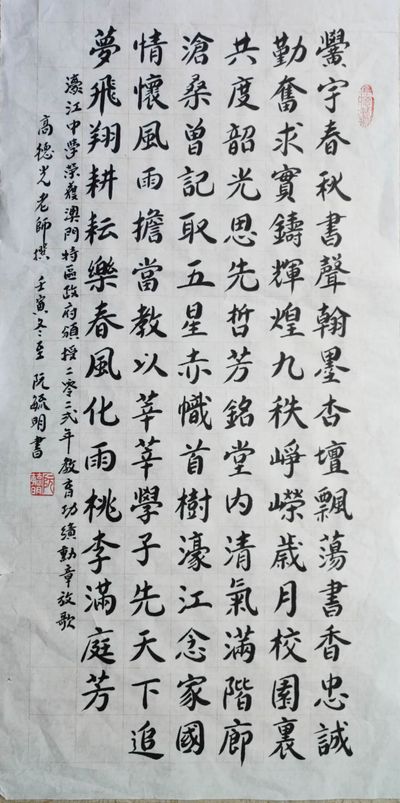 黌宇春秋書聲翰墨杏壇飄蕩書香忠誠
勤奮求實鑄輝煌九秩崢嶸歲月校園裏
共度韶光思先哲芳銘堂內清氣滿階廊
滄桑曾記取五星赤幟首樹濠江念家國
情懷風雨擔當教以莘莘學子先天下追
夢飛翔耕耘樂春風化雨桃李滿庭芳
濠江中學榮獲澳門特區政府頒授二零二弍年教育功績勳章放歌
高德光老師撰 壬寅冬至 阮毓明書